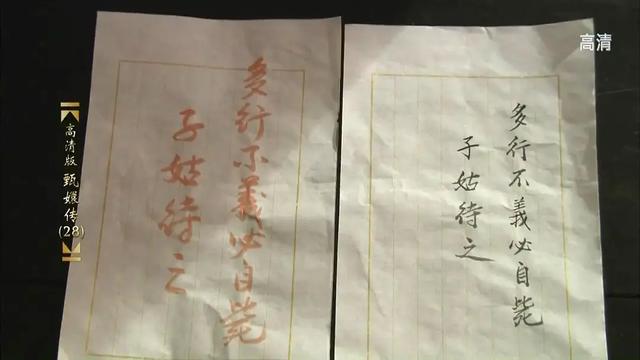 高清
高清版 甄嬛传(28)
多行不義必自毙
子姑待之
多行不義必自毙
子姑待之